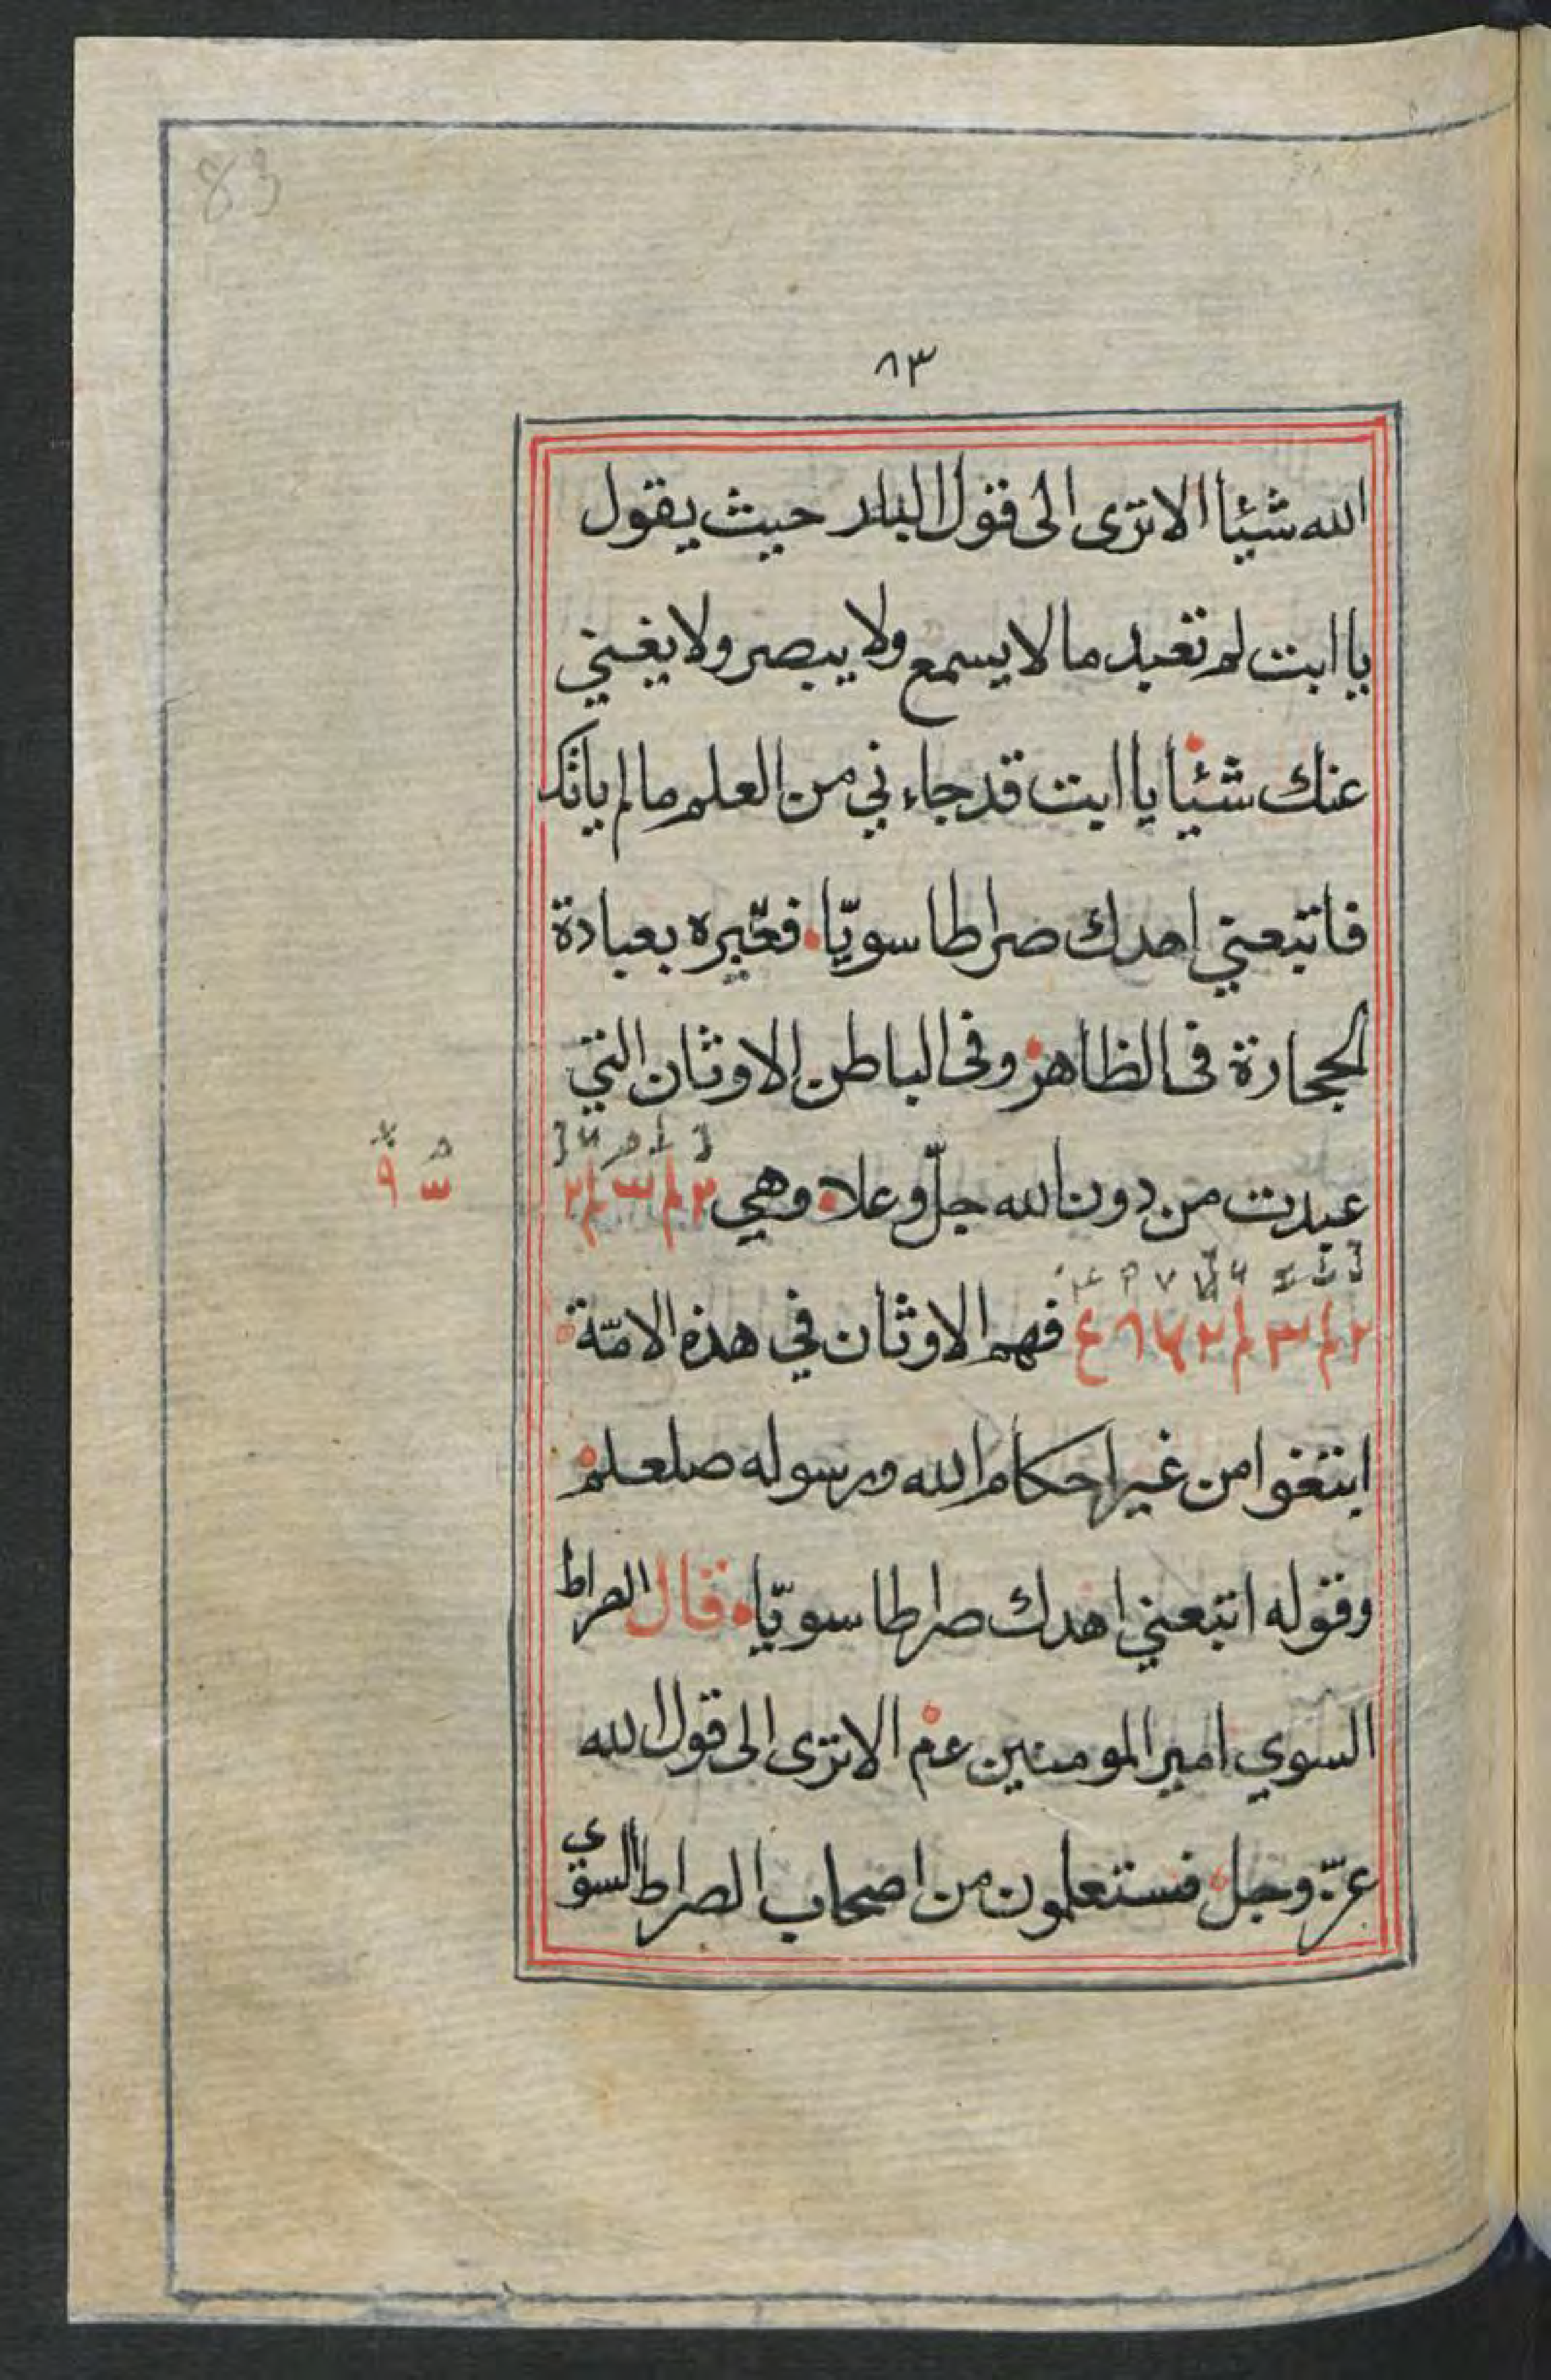 83
٨٣
الله شيئا الا ترى الى قول البار حيث يقول
يا ابت لم تعبد ما لا يسمع ولا يبصر ولا يغني
عنك شيئا يا ابت قد جاءني من العلم ما لم ياتك
فاتبعني اهدك صراطا سويّا فعّيره بعبادة
الحجارة فى الظاهر وفى الباطن الاوثان التي
عبدت من دون الله جلّ وعلا وهي
فهم الاوثان في هذه الامّة
ابتغوا من غير احكام الله ورسوله صلعلم
وقوله اتبعني اهدك صراطا سويّا قال الصراط
السوي امير المومنين عم الا ترى الى قول الله
عزّ وجل فستعلمون من اصحاب الصراط السوي